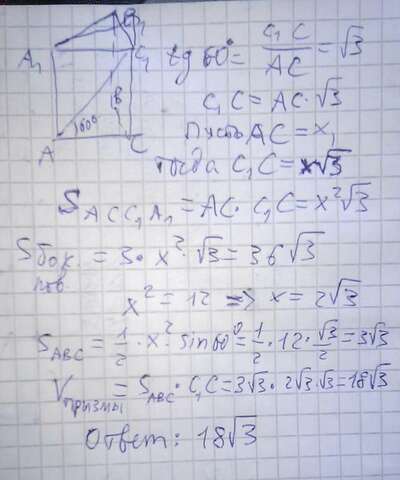 B₁
A₁
C₁
B
60°
A
C
tg 60° = C₁C / AC = √3
C₁C = AC·√3
Пусть AC = x,
тогда C₁C = x√3
S ACC₁A₁ = AC · C₁C = x²√3
S бок. пов. = 3 · x² · √3 = 36√3
x² = 12 => x = 2√3
S ABC = 1/2 · x² · sin 60° = 1/2 · 12 · √3/2 = 3√3
V призмы = S ABC · C₁C = 3√3 · 2√3 · √3 = 18√3
Ответ: 18√3